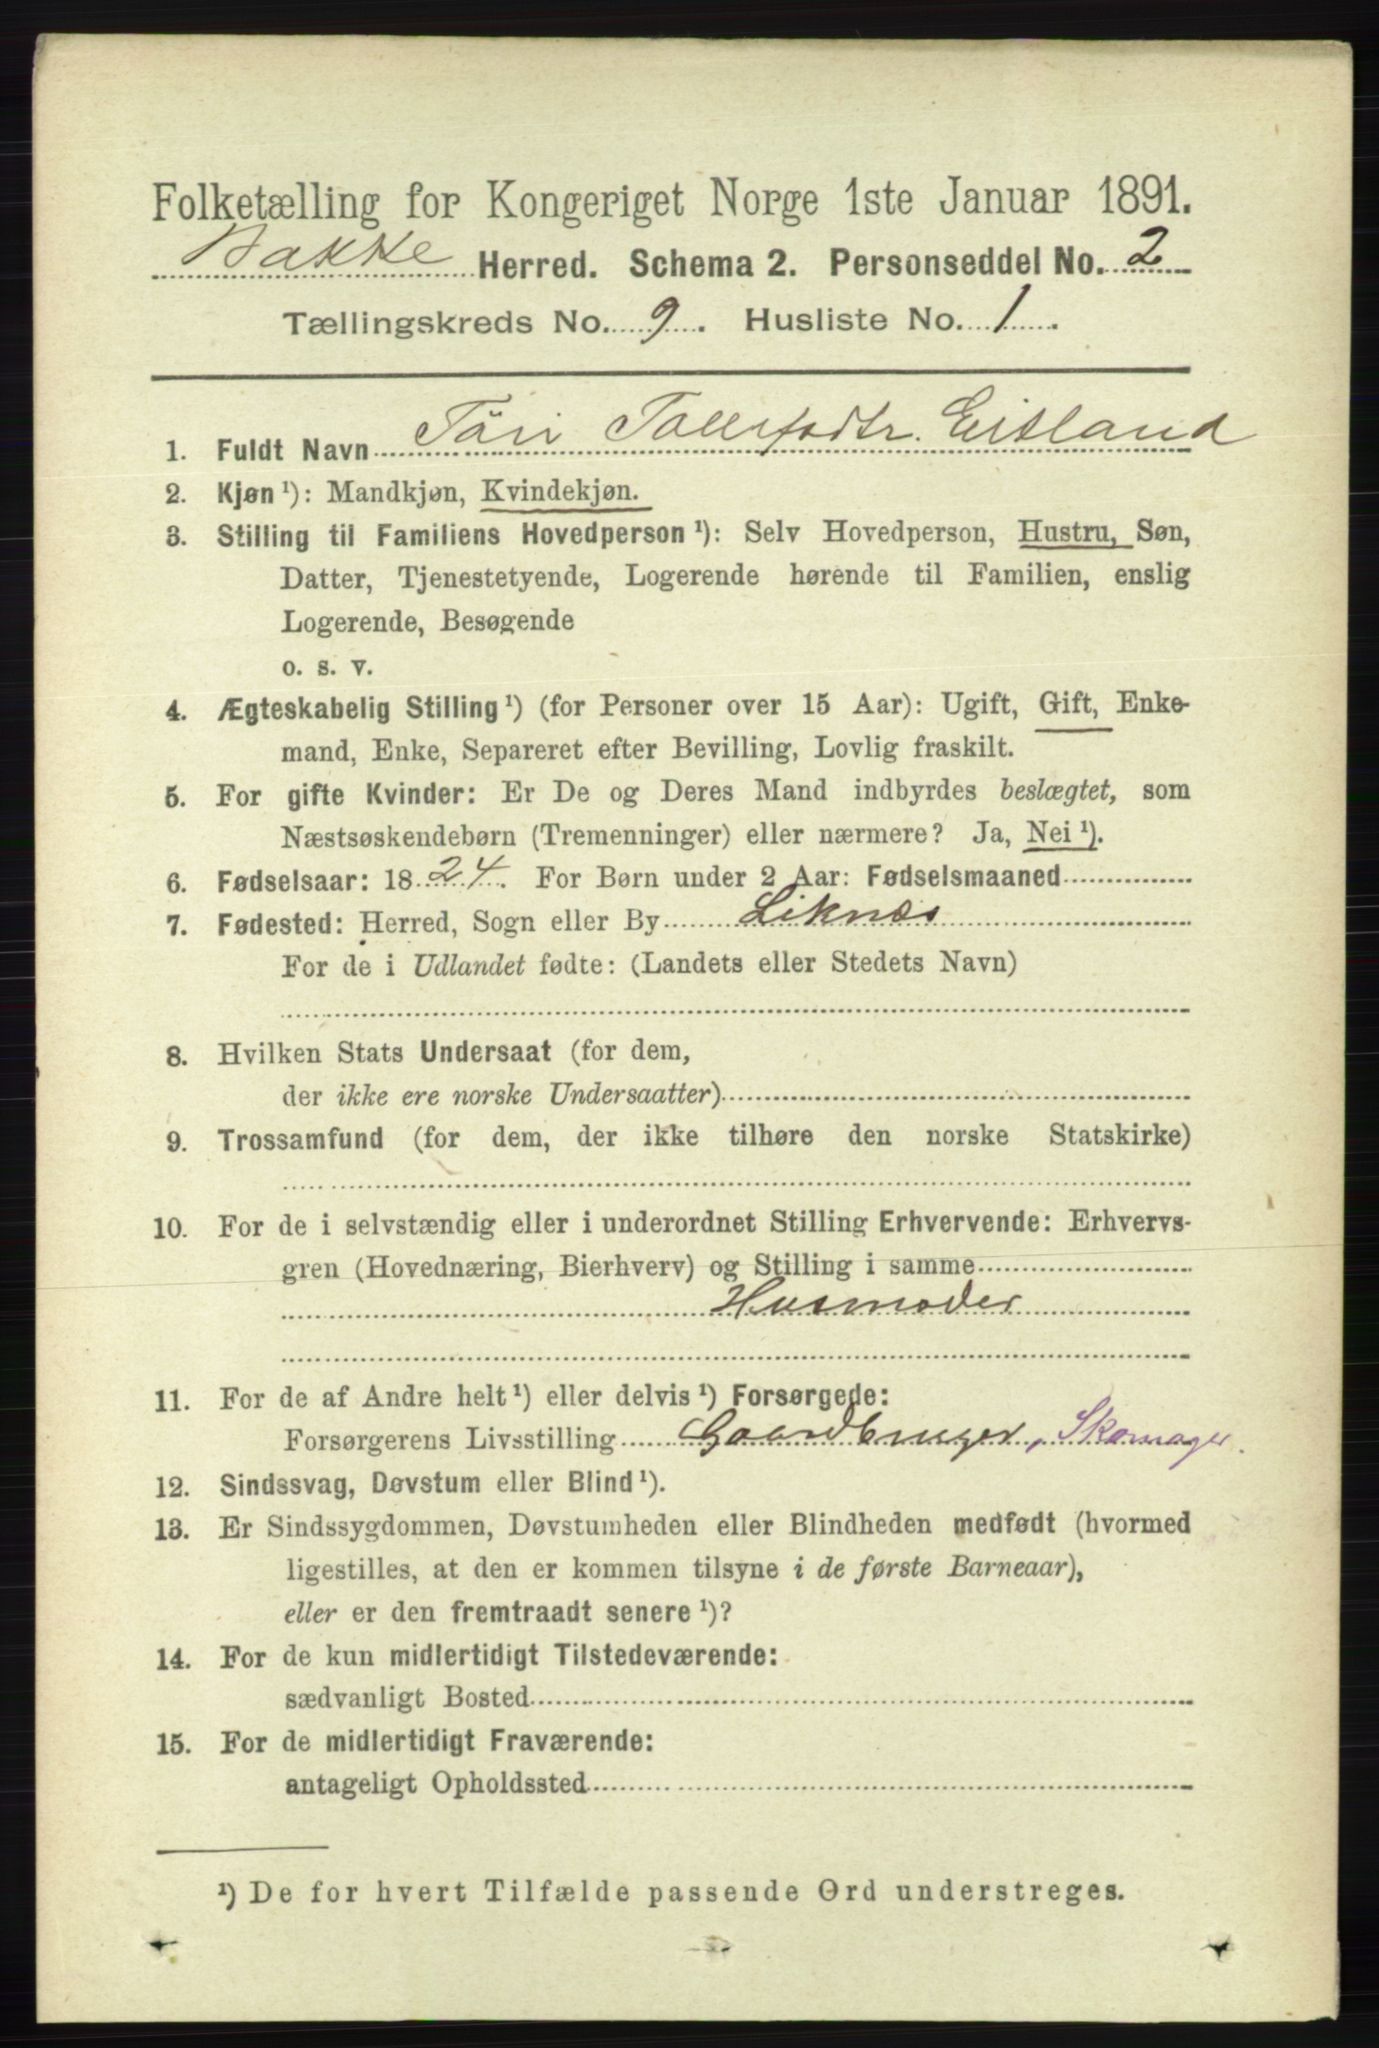 Folketælling for Kongeriget Norge 1ste Januar 1891.
Bakke Herred. Schema 2. Personseddel No. 2
Tællingskreds No. 9. Husliste No. 1.
1. Fuldt Navn Töri Tollefsdtr. Eitland
2. Kjøn ¹): Mandkjøn, Kvindekjøn.
3. Stilling til Familiens Hovedperson ¹): Selv Hovedperson, Hustru, Søn,
Datter, Tjenestetyende, Logerende hørende til Familien, enslig
Logerende, Besøgende
o. s. v.
4. Ægteskabelig Stilling ¹) (for Personer over 15 Aar): Ugift, Gift, Enke-
mand, Enke, Separeret efter Bevilling, Lovlig fraskilt.
5. For gifte Kvinder: Er De og Deres Mand indbyrdes beslægtet, som
Næstsøskendebørn (Tremenninger) eller nærmere? Ja, Nei ¹).
6. Fødselsaar: 1824. For Børn under 2 Aar: Fødselsmaaned
7. Fødested: Herred, Sogn eller By Liknæs
For de i Udlandet fødte: (Landets eller Stedets Navn)
8. Hvilken Stats Undersaat (for dem,
der ikke ere norske Undersaatter)
9. Trossamfund (for dem, der ikke tilhøre den norske Statskirke)
10. For de i selvstændig eller i underordnet Stilling Erhvervende: Erhvervs-
gren (Hovednæring, Bierhverv) og Stilling i samme
Husmoder
11. For de af Andre helt ¹) eller delvis ¹) Forsørgede:
Forsørgerens Livsstilling Gaardbruger, Skomager.
12. Sindssvag, Døvstum eller Blind ¹).
13. Er Sindssygdommen, Døvstumheden eller Blindheden medfødt (hvormed
ligestilles, at den er kommen tilsyne i de første Barneaar),
eller er den fremtraadt senere ¹)?
14. For de kun midlertidigt Tilstedeværende:
sædvanligt Bosted
15. For de midlertidigt Fraværende:
antageligt Opholdssted
¹) De for hvert Tilfælde passende Ord understreges.